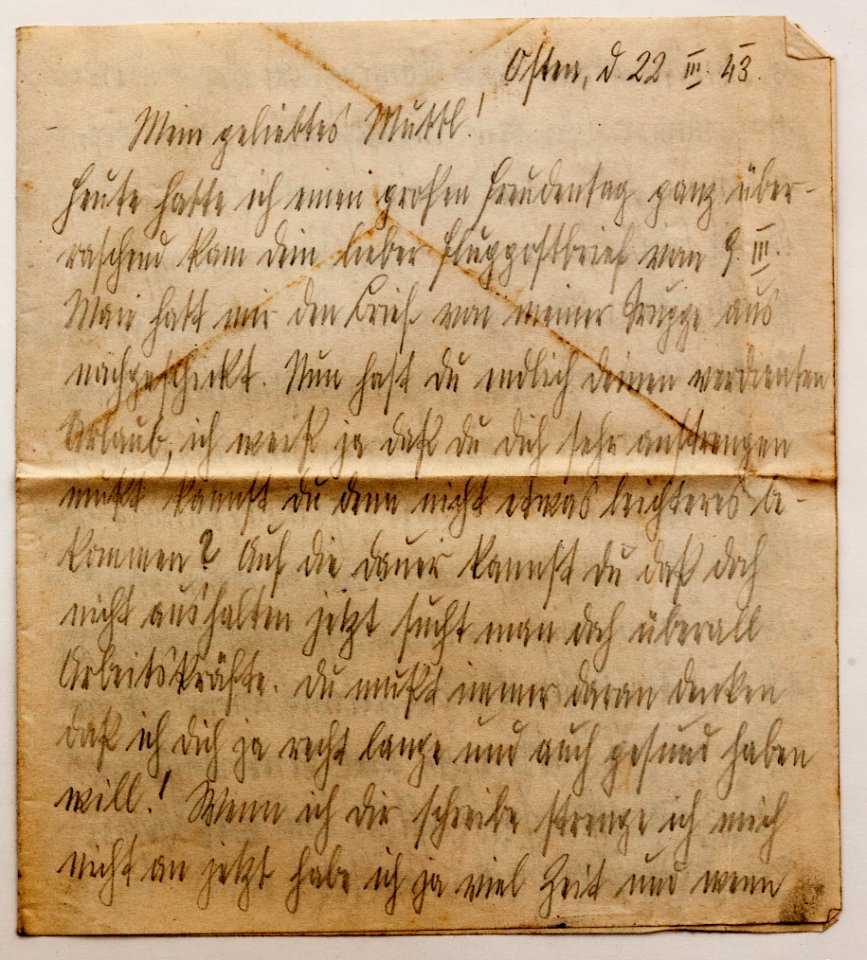 Osten, d. 22 III. 43.
Mein geliebtes Muttl!
Heute hatte ich einen großen Freudentag ganz über-
raschend kam dein lieber Flugpostbrief vom 9. III.
Man hatt mir den Brief von meiner Truppe aus
nachgeschickt. Nun hast du endlich deinen verdienten
Urlaub, ich weiß ja daß du dich sehr anstrengen
mußt kannst du denn nicht etwas leichteres be-
kommen? Auf die dauer kannst du daß doch
nicht aushalten jetzt sucht man doch überall
Arbeitskräfte. du mußt immer daran denken
daß ich dich ja recht lange und auch gesund haben
will! Wenn ich dir schreibe strenge ich mich
nicht an jetzt habe ich ja viel Zeit und wenn